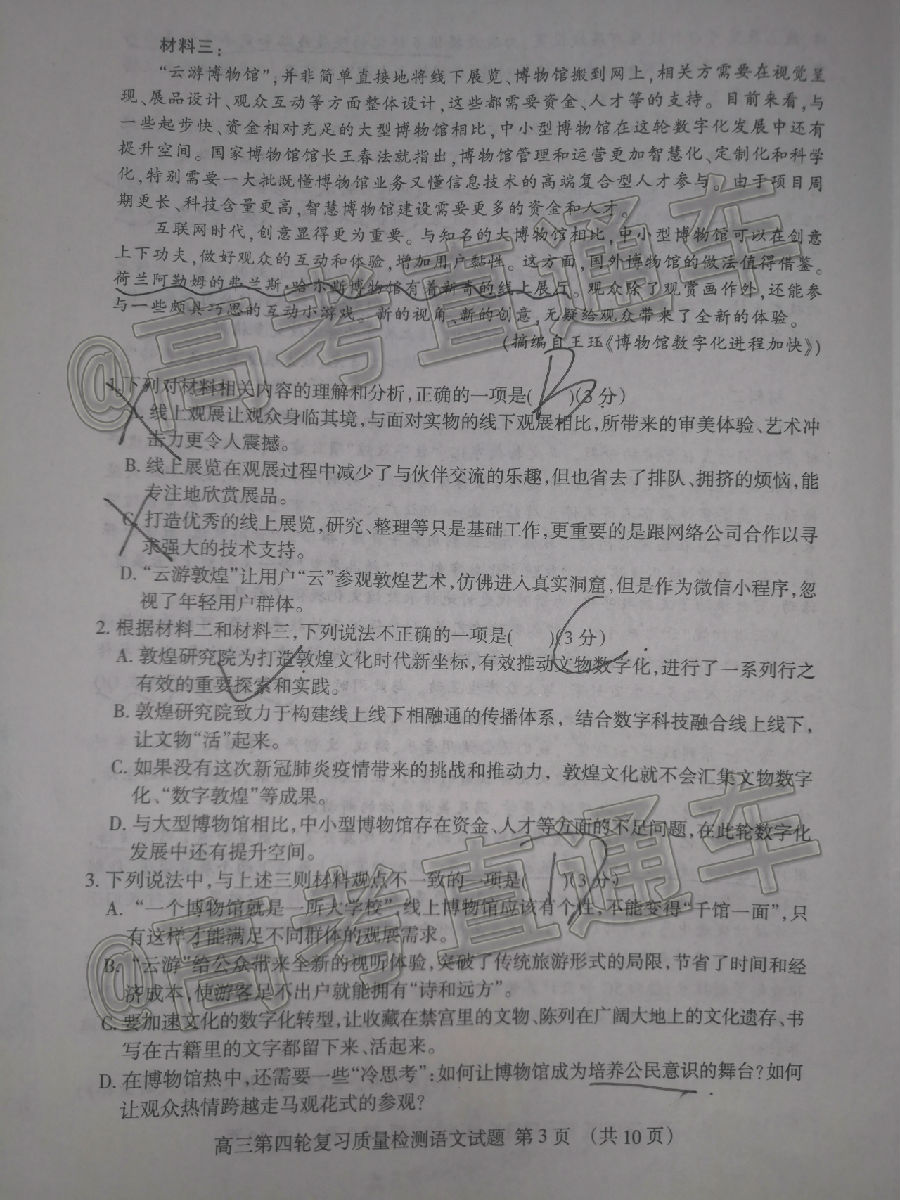 材料三：
“云游博物馆”，并非简单直接地将线下展览、博物馆搬到网上，相关方需要在视觉呈
现、展品设计、观众互动等方面整体设计，这些都需要资金、人才等的支持。目前来看，与
一些起步快、资金相对充足的大型博物馆相比，中小型博物馆在这轮数字化发展中还有
提升空间。国家博物馆馆长王春法就指出，博物馆管理和运营更加智慧化、定制化和科学
化，特别需要一大批既懂博物馆业务又懂信息技术的高端复合型人才参与。由于项目周
期更长、科技含量更高，智慧博物馆建设需要更多的资金和人才。
互联网时代，创意显得更为重要。与知名的大博物馆相比，中小型博物馆可以在创意
上下功夫，做好观众的互动和体验，增加用户黏性。这方面，国外博物馆的做法值得借鉴。
荷兰阿勒姆的弗兰斯·哈尔斯博物馆有着新奇的线上展厅。观众除了观赏画作外，还能参
与一些颇具巧思的互动小游戏。新的视角、新的创意，无疑给观众带来了全新的体验。
（摘编自王珏《博物馆数字化进程加快》）
1.下列对材料相关内容的理解和分析，正确的一项是( B )(3分)
A.线上观展让观众身临其境，与面对实物的线下观展相比，所带来的审美体验、艺术冲
击力更令人震撼。
B.线上展览在观展过程中减少了与伙伴交流的乐趣，但也省去了排队、拥挤的烦恼，能
专注地欣赏展品。
C.打造优秀的线上展览，研究、整理等只是基础工作，更重要的是跟网络公司合作以寻
求强大的技术支持。
D.“云游敦煌”让用户“云”参观敦煌艺术，仿佛进入真实洞窟，但是作为微信小程序，忽
视了年轻用户群体。
2.根据材料二和材料三，下列说法不正确的一项是( C )(3分)
A.敦煌研究院为打造敦煌文化时代新坐标，有效推动文物数字化，进行了一系列行之
有效的重要探索和实践。
B.敦煌研究院致力于构建线上线下相融通的传播体系，结合数字科技融合线上线下，
让文物“活”起来。
C.如果没有这次新冠肺炎疫情带来的挑战和推动力，敦煌文化就不会汇集文物数字
化、“数字敦煌”等成果。
D.与大型博物馆相比，中小型博物馆存在资金、人才等方面的不足问题，在此轮数字化
发展中还有提升空间。
3.下列说法中，与上述三则材料观点不一致的一项是( )(3分)
A.“一个博物馆就是一所大学校”线上博物馆应该有个性，不能变得“千馆一面”，只
有这样才能满足不同群体的观展需求。
B.“云游”给公众带来全新的视听体验，突破了传统旅游形式的局限，节省了时间和经
济成本，使游客足不出户就能拥有“诗和远方”。
C.要加速文化的数字化转型，让收藏在禁宫里的文物、陈列在广阔大地上的文化遗存、书
写在古籍里的文字都留下来、活起来。
D.在博物馆热中，还需要一些“冷思考”：如何让博物馆成为培养公民意识的舞台？如何
让观众热情跨越走马观花式的参观？
高三第四轮复习质量检测语文试题 第3页 （共10页）
@高考直通车
@高考直通车